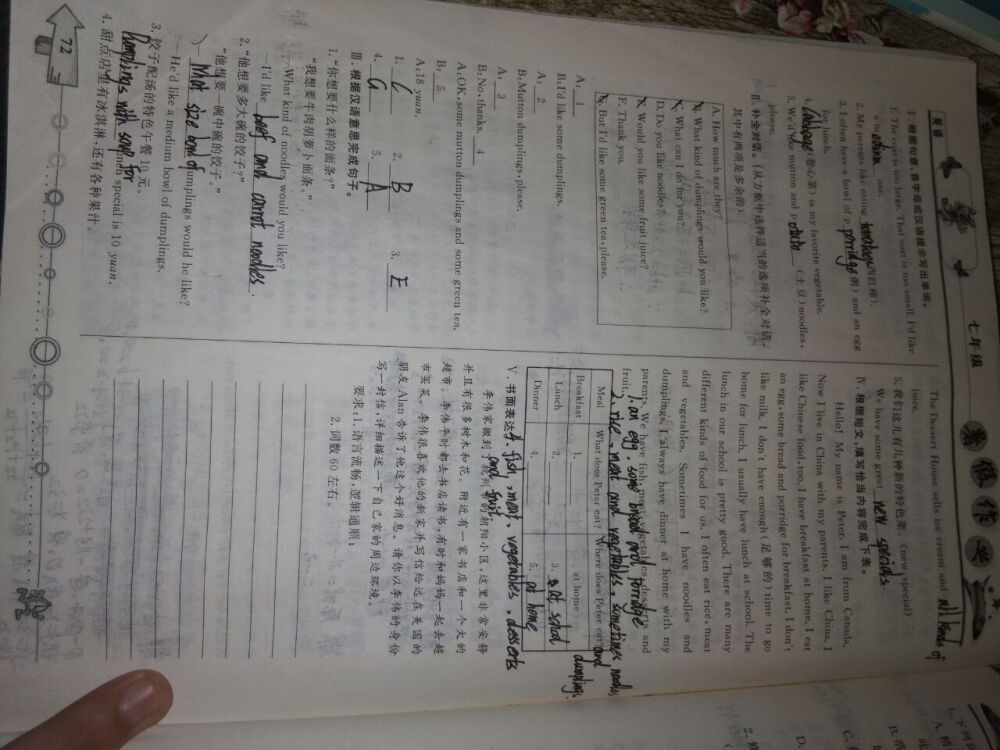 英语
七年级
寒假作业
Ⅰ. 根据句意、首字母或汉语提示写出单词。
1. The coat is too large. That coat is too small. I'd like
a m edium one.
2. My parents like eating (西红柿).
3. I often have a bowl of p porridge (粥) and an egg
for lunch.
4. Cabbage (卷心菜) is my favorite vegetable.
5. We'd like mutton and p otato (土豆) noodles,
please.
Ⅱ. 补全对话。(从方框中选择适当的选项补全对话。
其中有两项是多余的)
A. How much are they?
B. What kind of dumplings would you like?
C. What can I do for you?
D. Do you like noodles?
E. Would you like some fruit juice?
F. Thank you.
G. But I'd like some green tea, please.
A: 1
B: I'd like some dumplings.
A: 2
B: Mutton dumplings, please.
A: 3
B: No, thanks. 4
A: OK, some mutton dumplings and some green tea.
B: 5
A: 18 yuan.
1. C 2. B 3. E
4. G 5. A
Ⅲ. 根据汉语意思完成句子。
1. “你想要什么样的面条?”
“我想要牛肉胡萝卜面条。”
—What kind of noodles would you like?
—I'd like beef and carrot noodles.
2. “他想要多大碗的饺子?”
“他想要一碗中碗的饺子。”
—What size bowl of dumplings would he like?
—He'd like a medium bowl of dumplings.
3. 饺子配汤的特色午餐10元。
Dumplings with soup for lunch special is 10 yuan.
4. 甜点店里有冰淇淋,还有各种果汁。
72
The Dessert House sells ice cream and all kinds of
juice.
5. 我们这儿有几种新的特色菜。(new, special)
We have some great new specials.
Ⅳ. 根据短文,填写恰当内容完成下表。
Hello! My name is Peter. I am from Canada.
Now I live in China with my parents. I like China. I
like Chinese food, too. I have breakfast at home. I eat
an egg, some bread and porridge for breakfast. I don't
like milk. I don't have enough (足够的) time to go
home for lunch. I usually have lunch at school. The
lunch in our school is pretty good. There are many
different kinds of food for us. I often eat rice, meat
and vegetables. Sometimes I have noodles and
dumplings. I always have dinner at home with my
parents. We have fish, meat, vegetables, desserts and
fruit.
1. an egg, some bread and porridge
2. rice, meat and vegetables, sometimes noodles and dumplings.
Meal What does Peter eat? Where does Peter eat?
Breakfast 1. at home
Lunch 2. 3. at school
Dinner 4. 5. at home
4. fish, meat, vegetables, desserts
and fruit.
Ⅴ. 书面表达。
李伟家搬到了杭州的朝阳小区,这里非常安静
并且有很多树木和花。附近有一家书店和一个大的
超市。李伟平时都去书店读书,有时和妈妈一起去超
市买东。李伟很喜欢他的新家并写信给远在美国的
朋友 Alan 告诉了他这个好消息。请你以李伟的身份
写一封信,详细描述一下自己家的周边环境。
要求:1. 语言流畅,逻辑通顺;
2. 词数 60 左右。